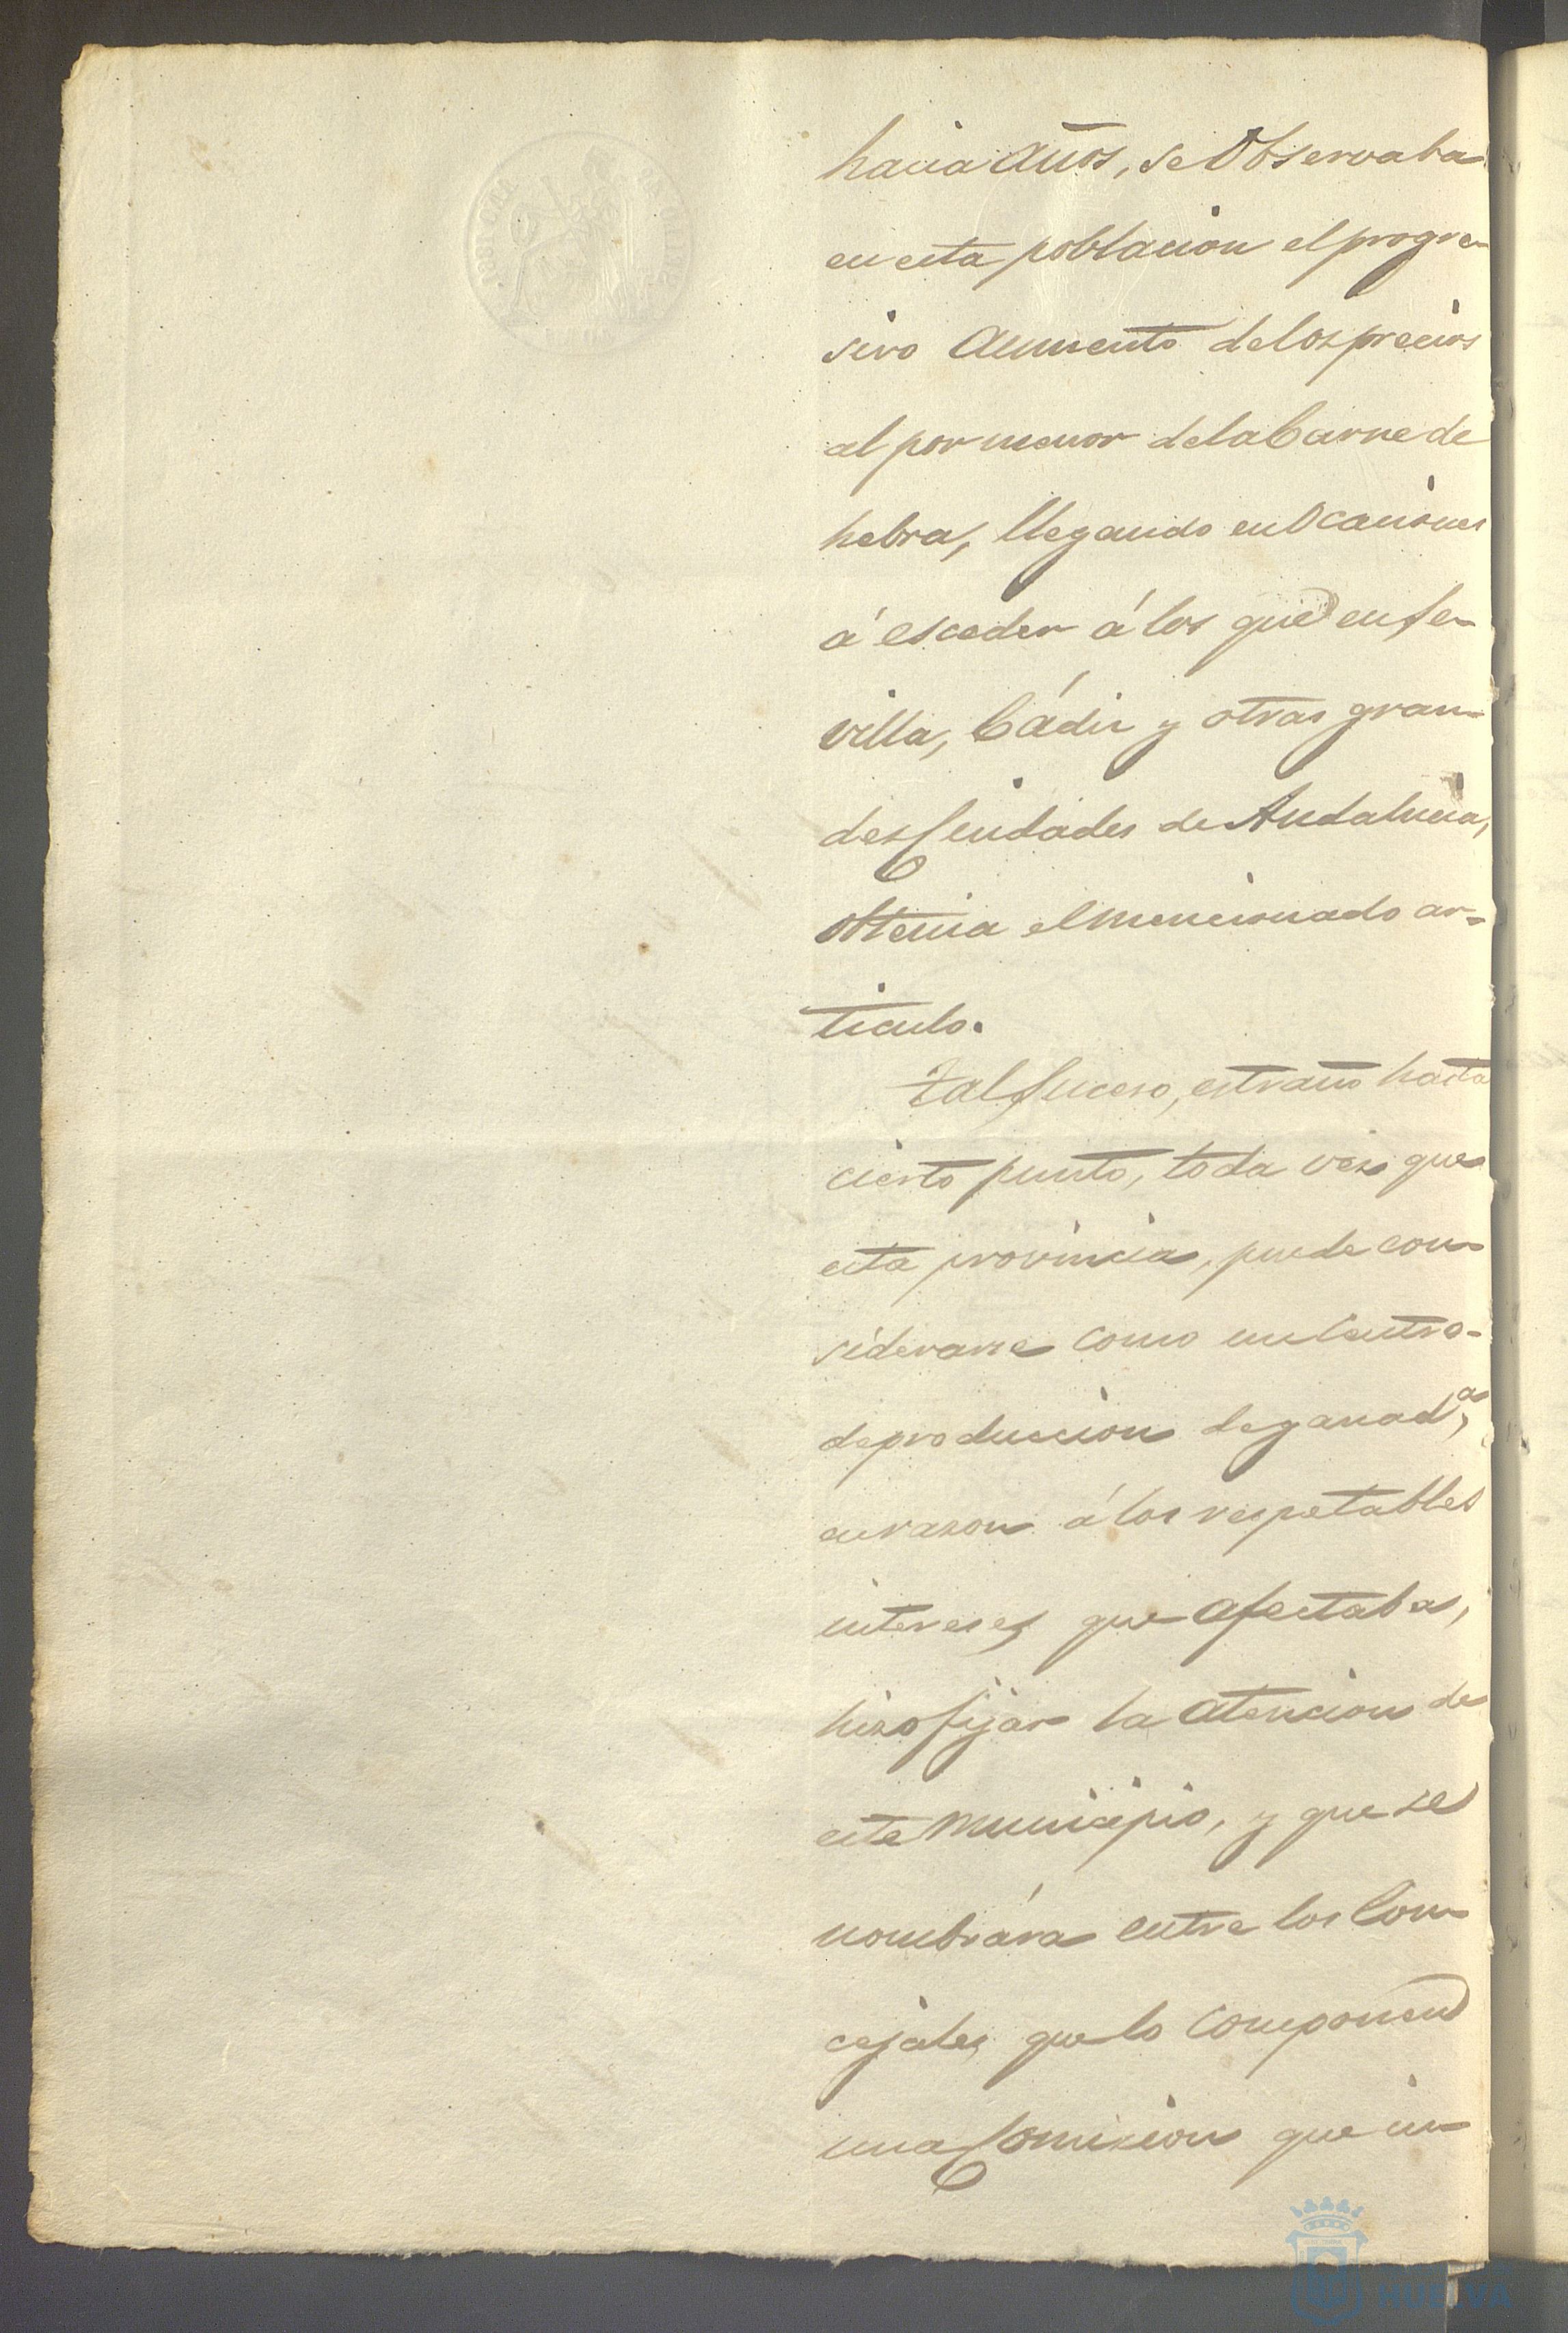 hacia años, se Observaba
en esta poblacion el progre-
sivo Aumento de los precios
al por menor de la Carne de
hebra, llegando en Ocasiones
á esceder á los que en Se-
villa, Cádiz y otras gran-
des Ciudades de Andalucia,
obtenia el mencionado ar-
ticulo.
Tal Suceso, estraño hasta
cierto punto, toda vez que
esta provincia, puede con-
siderarse como un Centro-
de produccion de ganados,
en razon á los respetables
intereses que Afectaba,
hizo fijar la Atencion de
este Municipio, y que se
nombrára entre los Con-
cejales que lo Componen
una Comision que in-
HUELVA